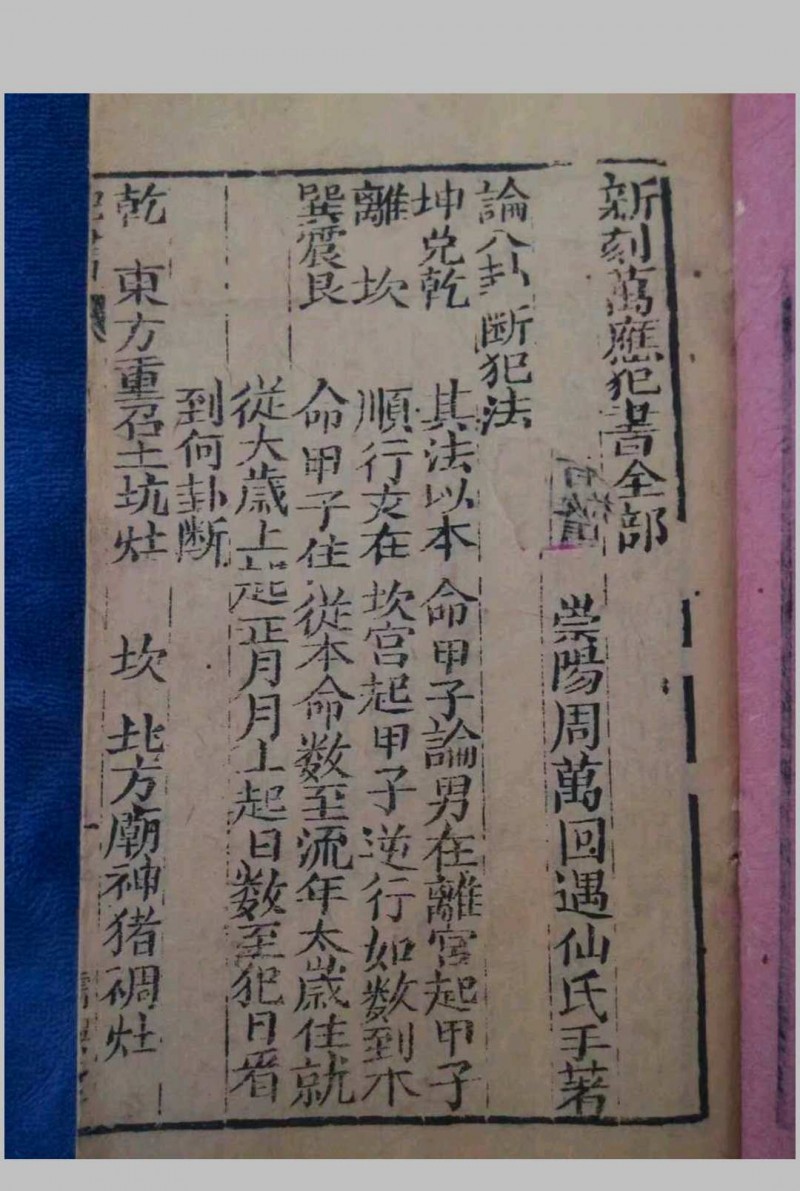 新刻萬應犯書全部
崇陽周萬回遇仙氏手著
論八卦断犯法
坤兌乾 其法以本命甲子論男在离宮起甲子
離坎 順行支在坎宮起甲子逆行如数到本
巽震艮 命甲子住從本命数至流年太歲住就
從大歲上起正月月上起日数至犯日看
到何卦断
乾 東方重召土坑灶 坎 北方廟神猪碉灶